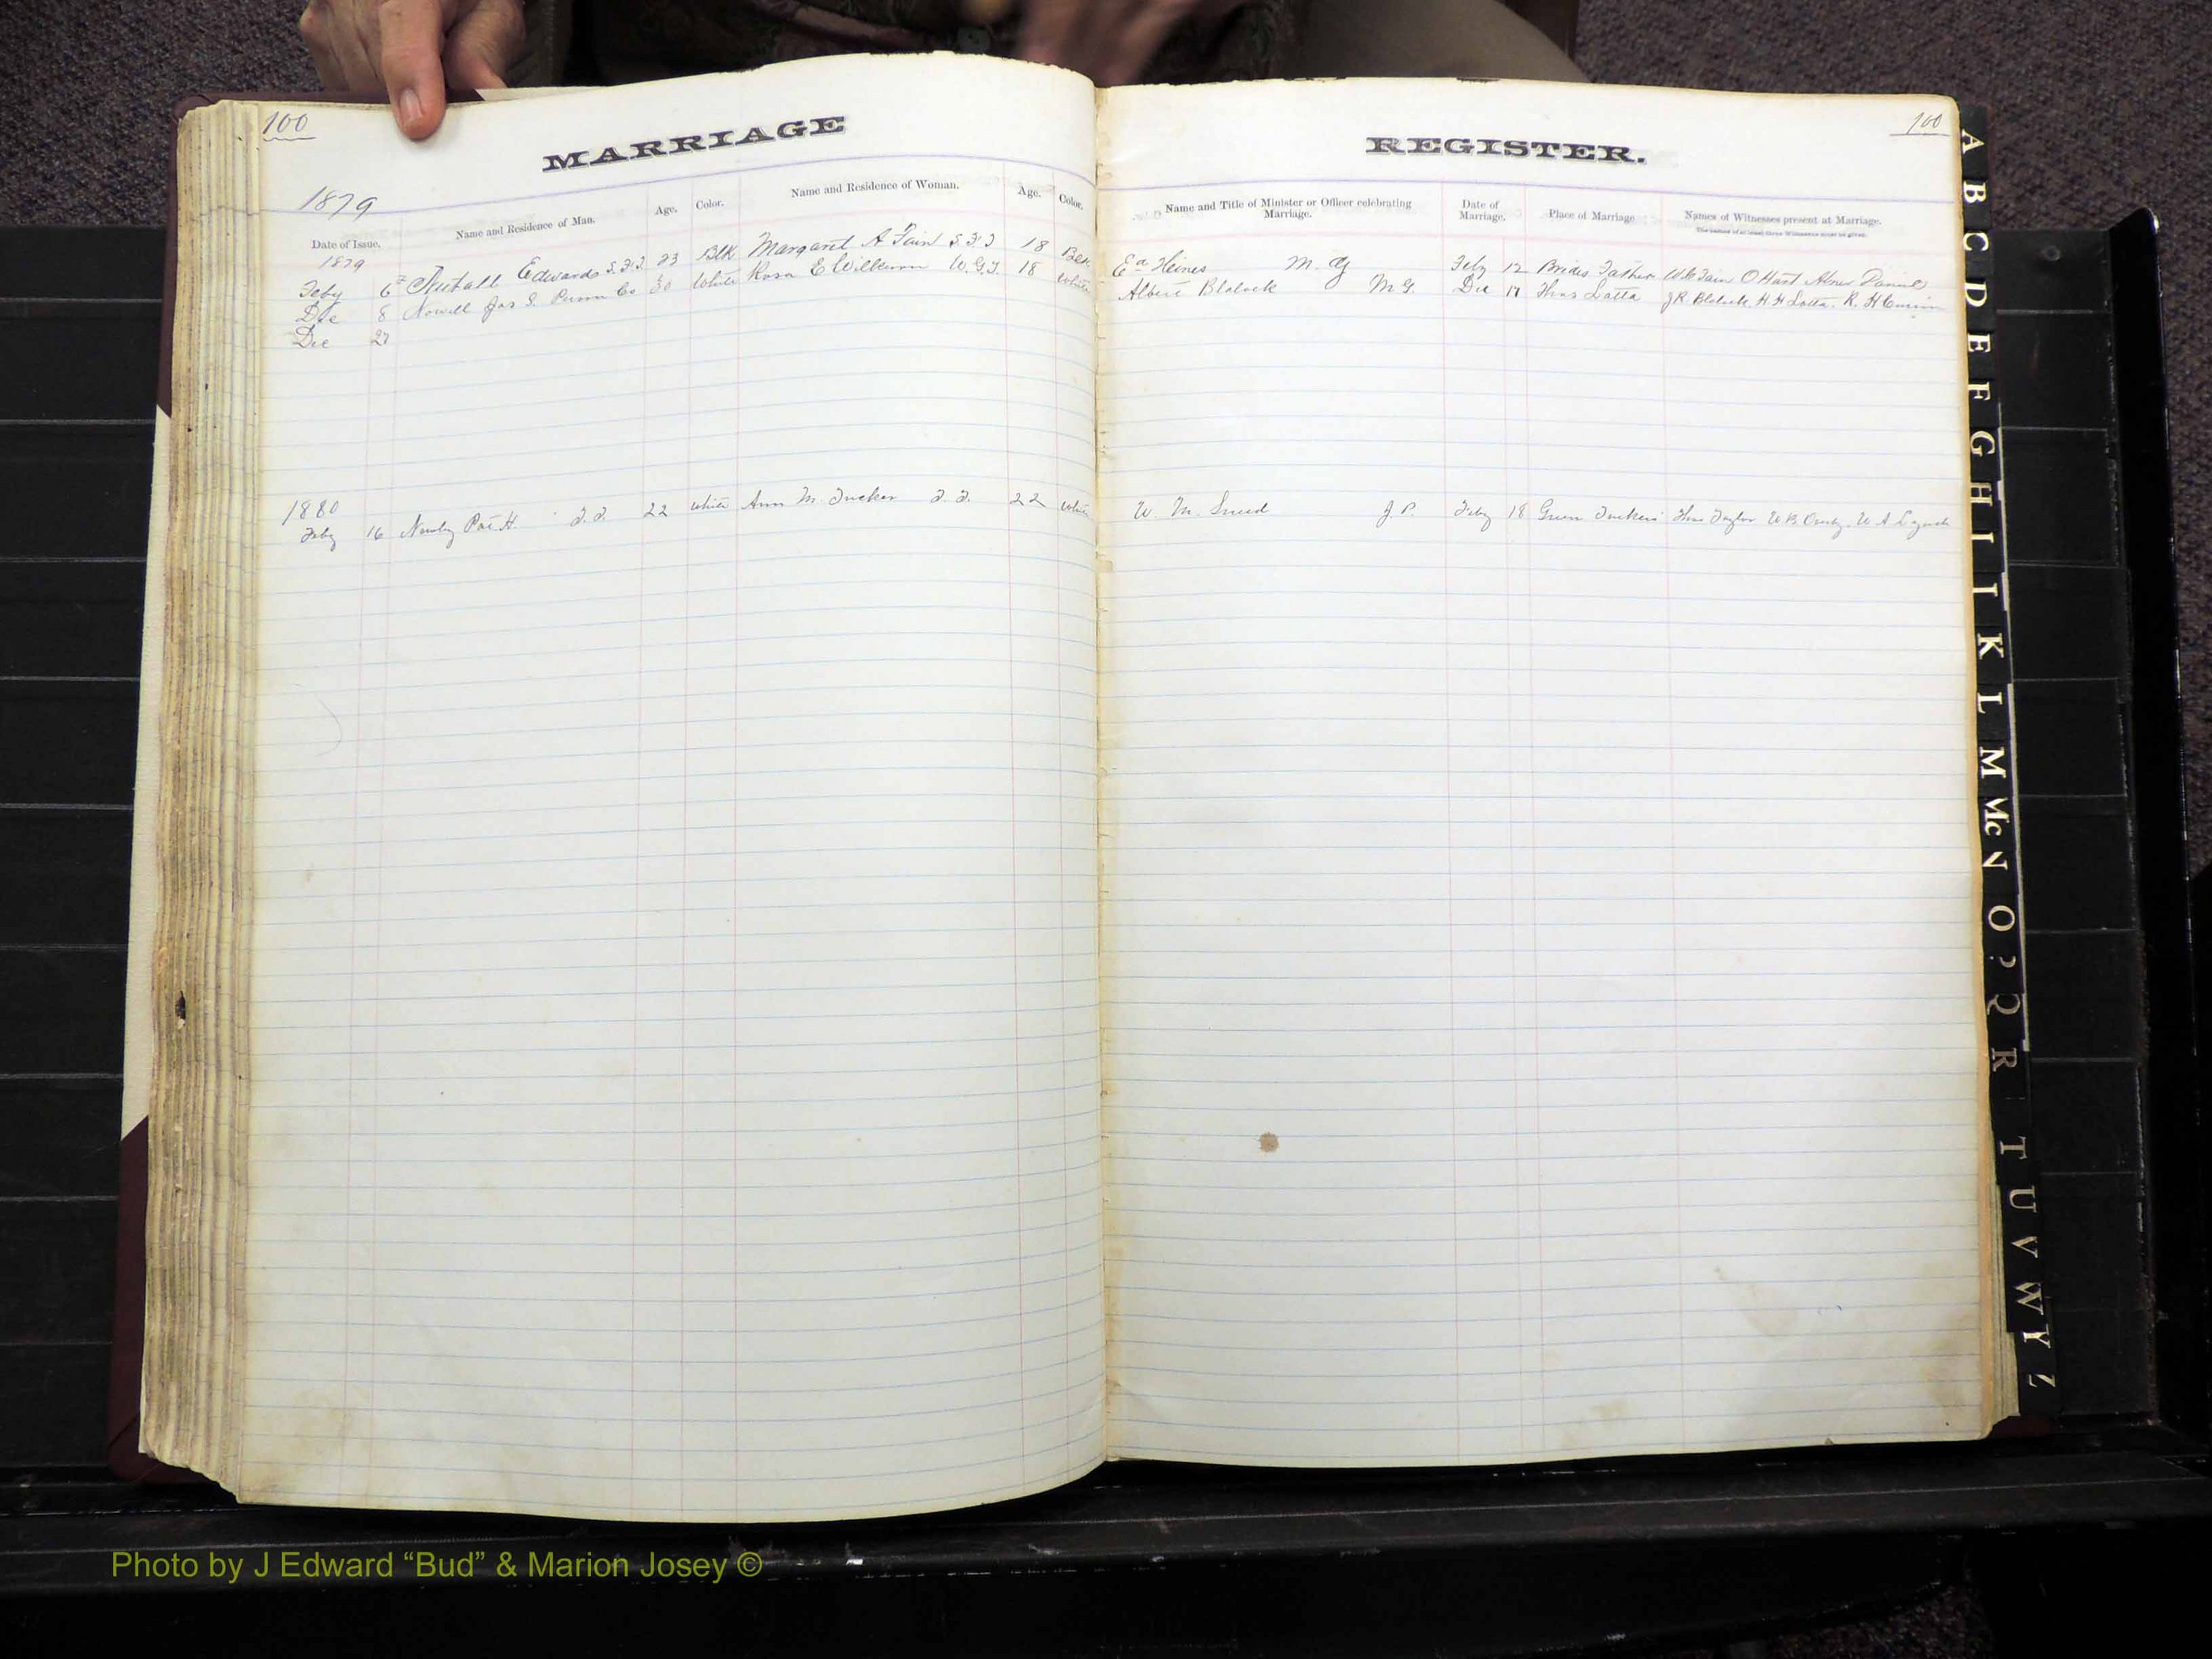 100
MARRIAGE
1879
Date of Issue. Name and Residence of Man. Age. Color. Name and Residence of Woman. Age. Color.
1879
Feby 6 Nutall Edwards 23 Blk Margaret A Fain 18 Blk
Dec 8 Nowell Jas S. Person Co 30 White Rosa E Wilkerson 18 White
Dec 27
1880
Feby 16 Newby Pat H. 22 White Ann M. Tucker 22 White
100
REGISTER.
Name and Title of Minister or Officer celebrating Marriage. Date of Marriage. Place of Marriage Names of Witnesses present at Marriage.
The names of at least three Witnesses must be given.
Ed Heines M. G Feby 12 Brides Father O Hart Abner Daniel
Albert Blalock M G. Dec 17 Thos Latta J R Blalock. H H Latta. R. H
W. M. Sneed J. P. Feby 18 Green Tuckers Thos Taylor W A
A B C D E F G H I I K L M Mc N O P Q R T U V W Y Z
Photo by J Edward “Bud” & Marion Josey ©